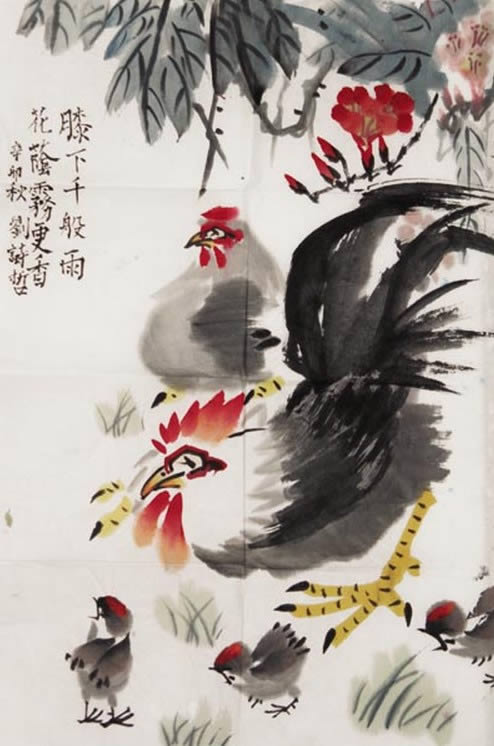 膝下千般雨
花蔭霧更香
辛卯秋 劉詩哲